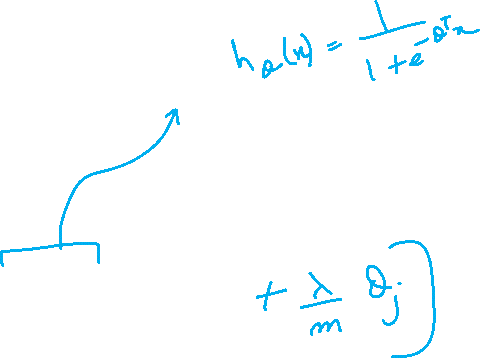 h_θ(x) = 1 / (1 + e^{-θ^T x})
+ λ/m θ_j ]